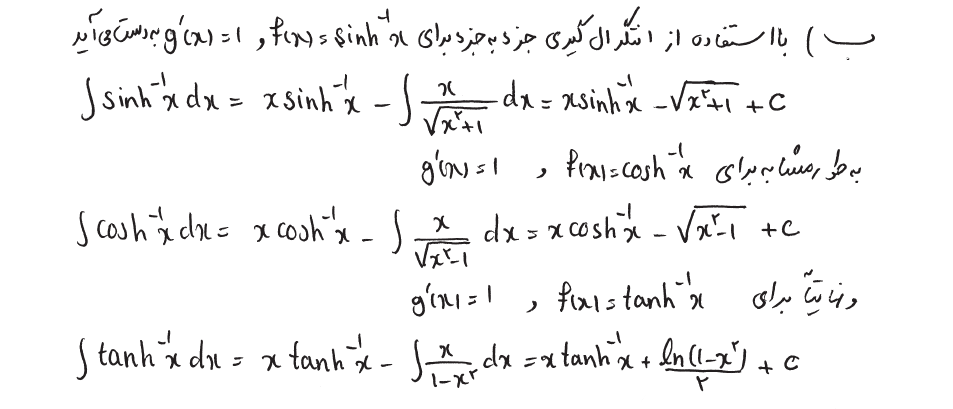 ب) با استفاده از انتگرال گیری جزء به جزء برای f(x) = sinh⁻¹x , g'(x) = 1 به دست می آید
∫ sinh⁻¹x dx = x sinh⁻¹x − ∫ x/√(x²+1) dx = x sinh⁻¹x − √(x²+1) + C
به طور مشابه برای f(x) = cosh⁻¹x , g'(x) = 1
∫ cosh⁻¹x dx = x cosh⁻¹x − ∫ x/√(x²−1) dx = x cosh⁻¹x − √(x²−1) + C
و نهایتاً برای f(x) = tanh⁻¹x , g'(x) = 1
∫ tanh⁻¹x dx = x tanh⁻¹x − ∫ x/(1−x²) dx = x tanh⁻¹x + ln(1−x²)/۲ + C